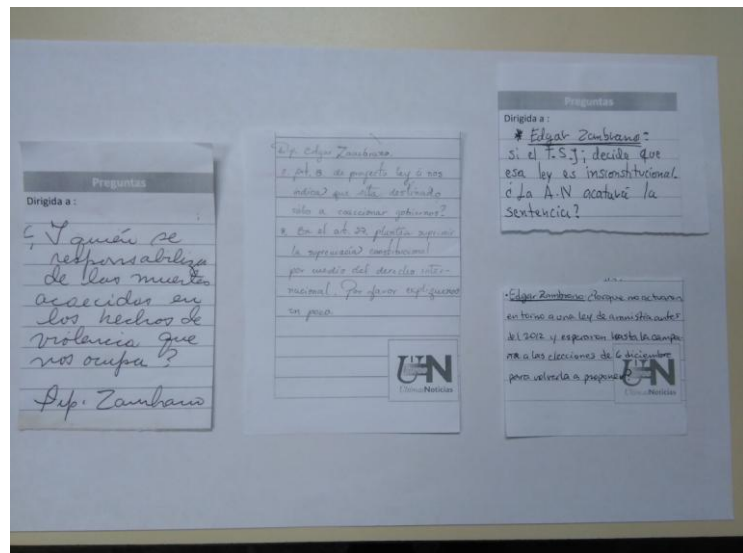 Preguntas
Dirigida a :
¿ Y quién se
responsabiliza
de las muertes
acaecidas en
los hechos de
violencia que
nos ocupa ?
Dip. Zambrano
Dip. Edgar Zambrano.
art. de proyecto ley
indica que está destinado
sólo a
En el art. 22 plantea suprimir
la supremacía constitucional
por medio del derecho inter-
nacional. Por favor
un poco.
UN
ÚltimasNoticias
Preguntas
Dirigida a :
* Edgar Zambrano:
si el T.S.J; decide que
esa ley es insonstitucional
¿ La A.N acatará la
sentencia?
• Edgar Zambrano: ¿Porque no actuaron
en torno a una ley de amnistía antes
del 2012 y esperaron hasta la campa-
ña a las elecciones de 6 diciembre
para volverla a proponer?
UN
ÚltimasNoticias